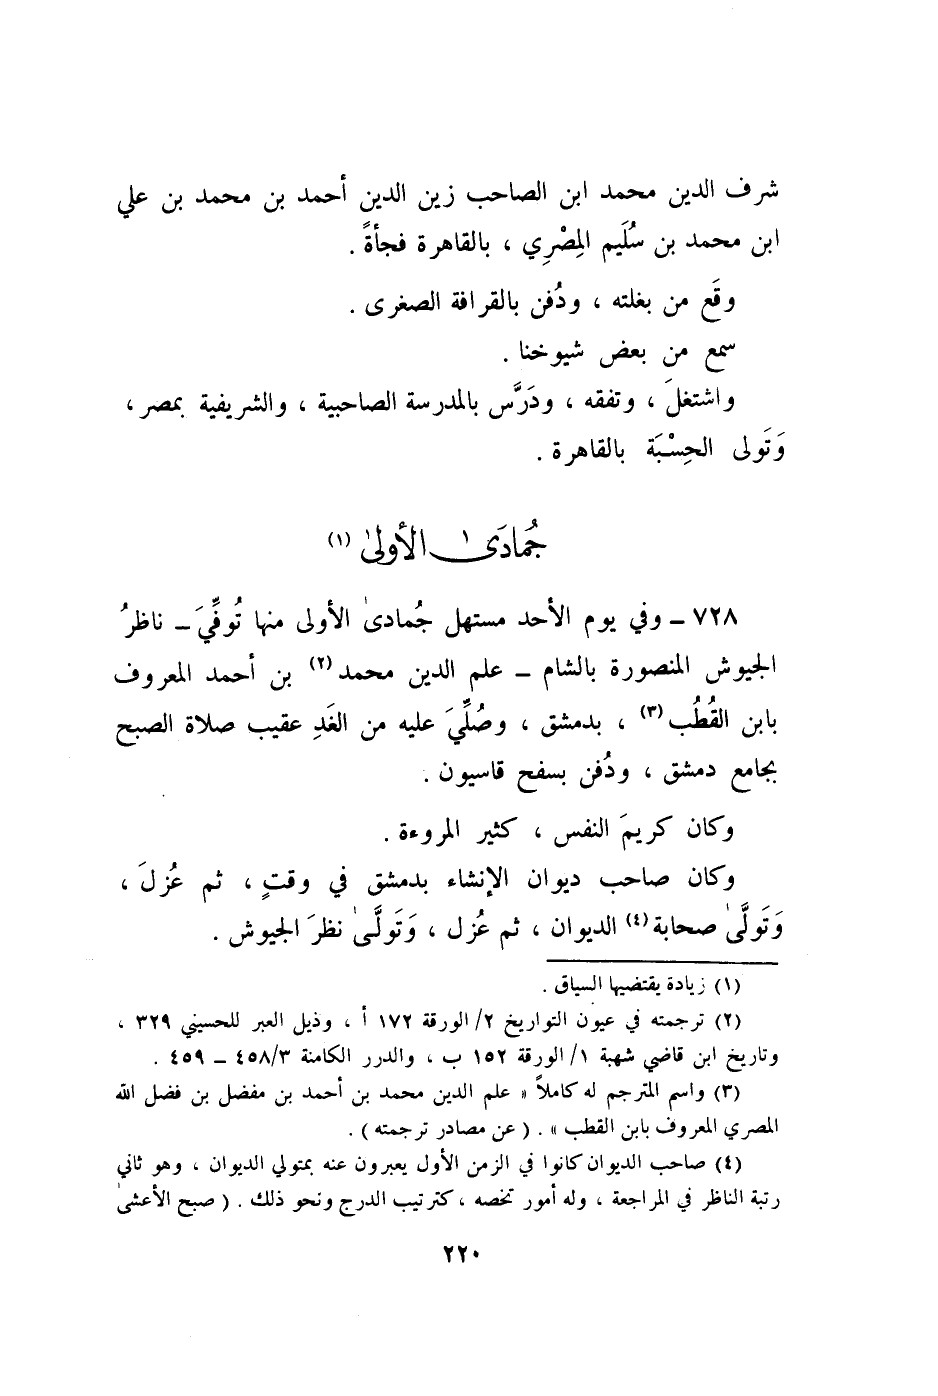 شرف الدين محمد ابن الصاحب زين الدين أحمد بن محمد بن علي
ابن محمد بن سُلَيم المِصْرِي ، بالقاهرة فجأةً .
وقَع من بغلته ، ودُفن بالقرافة الصغرى .
سمع من بعض شيوخنا .
واشتغلَ ، وتفقه ، ودَرَّس بالمدرسة الصاحبية ، والشريفية بمصر ،
وَتَولى الحِسْبَة بالقاهرة .
جُمادَىٰ الأولىٰ (١)
٧٢٨ ـ وفي يوم الأحد مستهل جُمادىٰ الأولى منها تُوفِّيَ ـ ناظرُ
الجيوش المنصورة بالشام ـ علم الدين محمد (٢) بن أحمد المعروف
بابن القُطُب (٣) ، بدمشق ، وصُلِّيَ عليه من الغَدِ عقيب صلاة الصبح
بجامع دمشق ، ودُفن بسفح قاسيون .
وكان كريمَ النفس ، كثير المروءة .
وكان صاحب ديوان الإنشاء بدمشق في وقتٍ ، ثم عُزلَ ،
وَتَولَّىٰ صحابة (٤) الديوان ، ثم عُزل ، وَتَولَّىٰ نظرَ الجيوش .
(١) زيادة يقتضيها السياق .
(٢) ترجمته في عيون التواريخ ٢/ الورقة ١٧٢ أ ، وذيل العبر للحسيني ٣٢٩ ،
وتاريخ ابن قاضي شهبة ١/ الورقة ١٥٢ ب ، والدرر الكامنة ٤٥٨/٣ ـ ٤٥٩ .
(٣) واسم المترجم له كاملاً « علم الدين محمد بن أحمد بن مفضل بن فضل الله
المصري المعروف بابن القطب » . ( عن مصادر ترجمته ) .
(٤) صاحب الديوان كانوا في الزمن الأول يعبرون عنه بمتولي الديوان ، وهو ثاني
رتبة الناظر في المراجعة ، وله أمور تخصه ، كترتيب الدرج ونحو ذلك . ( صبح الأعشىٰ
٢٢٠